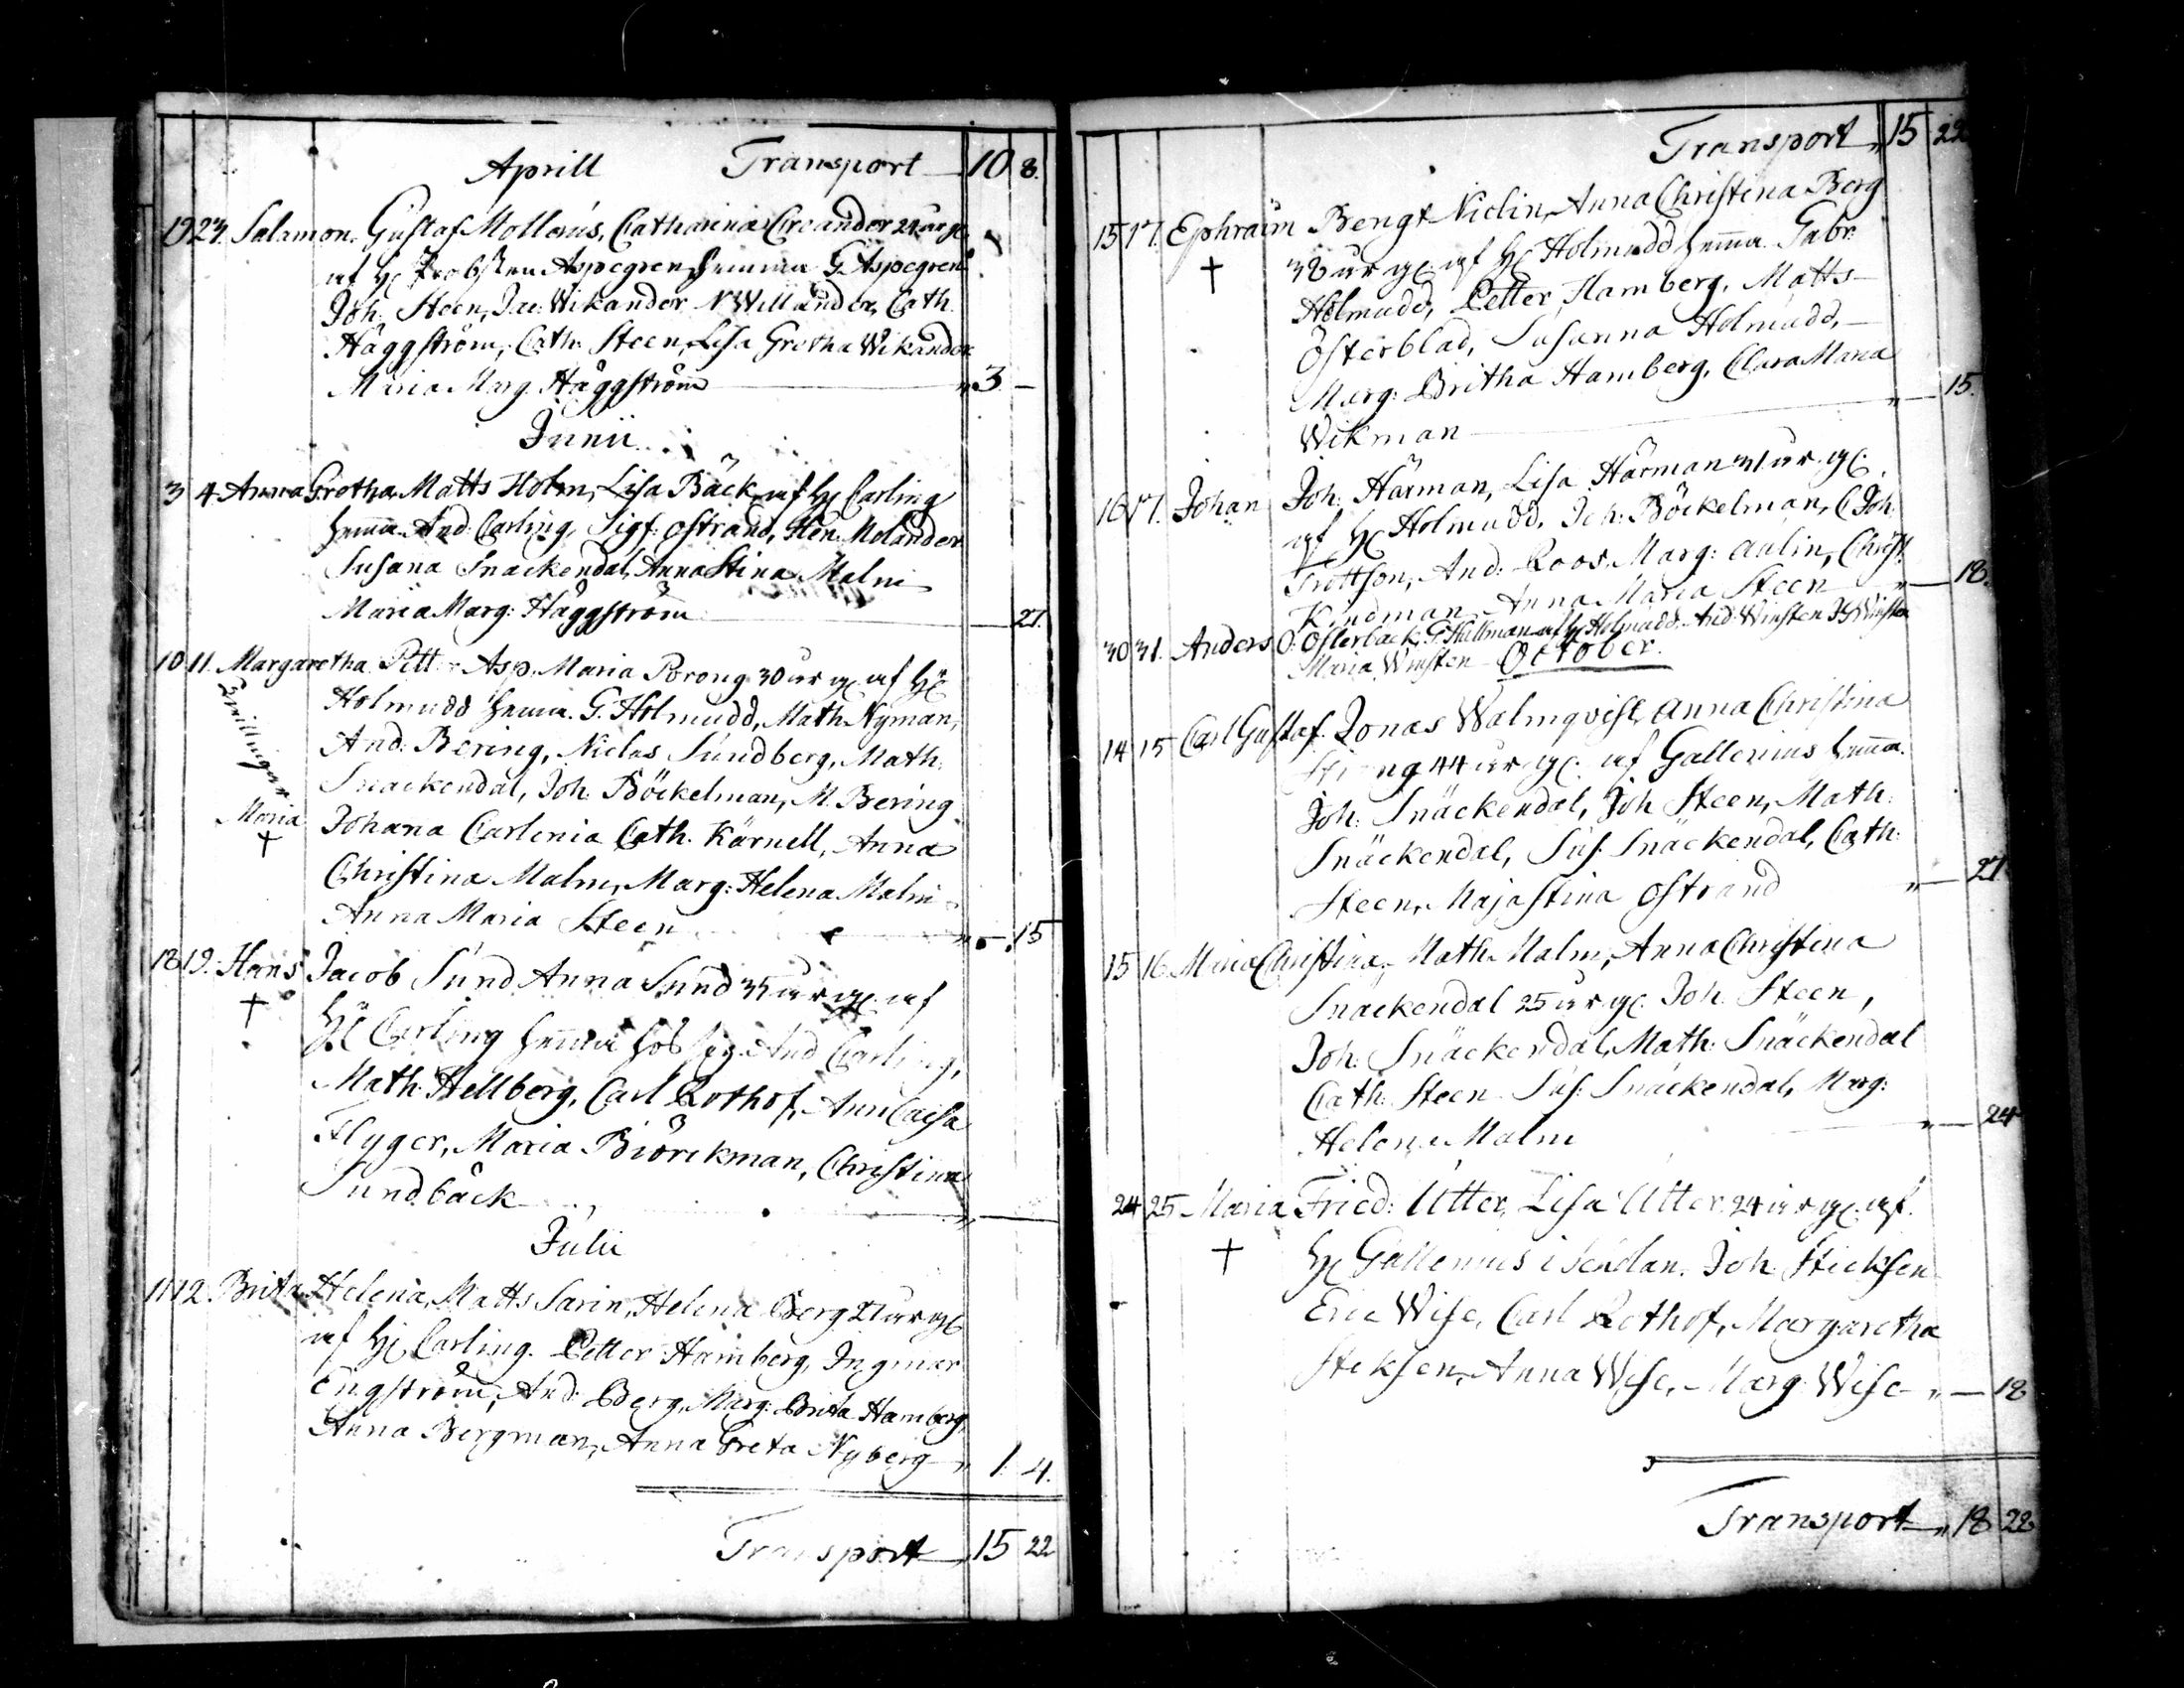 Aprill Transport 10 8.
19 23. Salamon. Gustaf Mollerus, Catharina Creander 24 år g.
af H: Probsten Aspegren hemma G. Aspegren
Joh: Steen, Jac: Wikander N Willander, Cath.
Häggström, Cath: Steen, Lisa Gretha Wikander
Maria Marg. Häggström 3 —
Junii
3 4. Anna Gretha. Matts Holm, Lisa Bäck af H: Carling
hemma. And: Carling, Sigf: Ostrand, Hen: Molander
Susana Snackendal, Anna Stina Malm
Maria Marg: Häggström 27.
10 11. Margaretha Pett: Asp. Maria Prong 30 år g. af H:
Tvillingar
Holmudd hemma. G. Holmudd, Math Nyman,
And: Bering, Niclas Sundberg, Math:
Snackendal, Joh: Böckelman, M. Bering
Maria † Johana Carlenia Cath. Kärnell, Anna
Christina Malm, Marg: Helena Malm
Anna Maria Steen — 15
18 19. Hans Jacob Sund Anna Sund 35 år g. af
† H: Carling hemma And Carling,
Math: Hellberg, Carl Rothof, Ann Caisa
Flyger, Maria Biörckman, Christina
Sundbäck —
Julii
11 12. Brita Helena, Matts Sarin, Helena Berg 21 år g.
af H: Carling. Petter Hamberg, Ingmar
Engström, And: Berg, Marg: Brita Hamberg,
Anna Bergman, Anna Greta Nyberg 1. 4.
Transport 15 22
Transport 15 22
15 17. Ephraim Bengt Niclin, Anna Christina Berg
† 38 år g. af H: Holmudd hemma. Gabr:
Holmudd, Petter Hamberg, Matts
Österblad, Susanna Holmudd, —
Marg: Britha Hamberg, Clara Maria
Wikman — 15.
16 17. Johan Joh: Härman, Lisa Härman 31 år g.
af H: Holmudd. Joh: Böckelman, C Joh:
And: Roos. Marg: Aulin, Christ:
Kindman, Anna Maria Steen — 18.
30 31. Anders O: Österback, G: Hallman af H: Holmudd. And Winsten
Maria Winsten October.
14 15 Carl Gustaf. Jonas Walmqvist, Anna Christina
44 år g. af Gallenius hemma.
Joh: Snäckendal, Joh Steen, Math:
Snäckendal, Sus: Snäckendal, Cath:
Steen, Maja Stina Ostrand — 27.
15 16. Maria Christina, Math Malm, Anna Christina
Snäckendal 25 år g. Joh: Steen,
Joh: Snäckendal, Math: Snäckendal
Cath: Steen Sus: Snäckendal, Marg:
Helena Malm — 24
24 25 Maria Fried: Utter, Lisa Utter 24 år g. af
† H: Gallenius Joh Sticksen
Eric Wise, Carl Rothof, Margaretha
Sticksen, Anna Wise, Marg Wise — 18
Transport 18 22